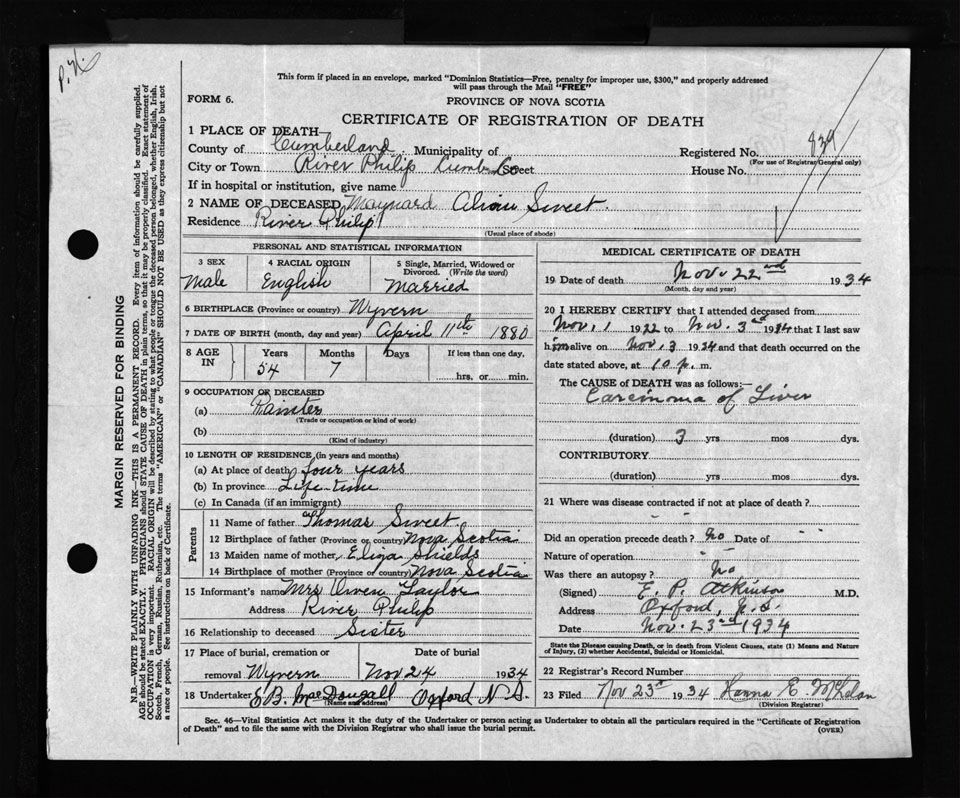 P.H.
This form if placed in an envelope, marked "Dominion Statistics—Free, penalty for improper use, $300," and properly addressed
will pass through the Mail "FREE"
FORM 6.
PROVINCE OF NOVA SCOTIA
CERTIFICATE OF REGISTRATION OF DEATH
1 PLACE OF DEATH—
County of Cumberland Municipality of Registered No. 839
(For use of Registrar General only)
City or Town River Philip Cumb Co Street House No.
If in hospital or institution, give name
2 NAME OF DECEASED Maynard Sweet
Residence River Philip
(Usual place of abode)
PERSONAL AND STATISTICAL INFORMATION
3 SEX 4 RACIAL ORIGIN 5 Single, Married, Widowed or
Divorced. (Write the word)
Male English Married
6 BIRTHPLACE (Province or country) Wyvern
7 DATE OF BIRTH (month, day and year) April 11th 1880
8 AGE IN Years Months Days If less than one day,
54 7 hrs. or min.
9 OCCUPATION OF DECEASED
(a) Painter
(Trade or occupation or kind of work)
(b)
(Kind of industry)
10 LENGTH OF RESIDENCE (in years and months)
(a) At place of death four years
(b) In province Life-time
(c) In Canada (if an immigrant)
Parents
11 Name of father Thomas Sweet
12 Birthplace of father (Province or country) Nova Scotia
13 Maiden name of mother Eliza Shields
14 Birthplace of mother (Province or country) Nova Scotia
15 Informant's name Mrs Owen Taylor
Address River Philip
16 Relationship to deceased Sister
17 Place of burial, cremation or Date of burial
removal Wyvern Nov 24 1934
18 Undertaker E.B. MacDougall Oxford N.S.
(Name and address)
MEDICAL CERTIFICATE OF DEATH
19 Date of death Nov. 22nd 1934
(Month, day and year)
20 I HEREBY CERTIFY that I attended deceased from
Nov. 1 1922 to Nov. 3rd 1934 that I last saw
him alive on Nov. 3 1934 and that death occurred on the
date stated above, at 10 p. m.
The CAUSE OF DEATH was as follows:—
Carcinoma of Liver
(duration) 3 yrs mos dys.
CONTRIBUTORY
(duration) yrs mos dys.
21 Where was disease contracted if not at place of death?
Did an operation precede death? No Date of
Nature of operation
Was there an autopsy? No
(Signed) E. P. Atkinson M.D.
Address Oxford, N.S.
Date Nov. 23rd 1934
State the Disease causing Death, or in death from Violent Causes, state (1) Means and
Nature of Injury, (2) whether Accidental, Suicidal or Homicidal.
22 Registrar's Record Number
23 Filed Nov 23rd 1934 Hanna E.
(Division Registrar)
Sec. 46—Vital Statistics Act makes it the duty of the Undertaker or person acting as Undertaker to obtain all the particulars required in the "Certificate of Registration
of Death" and to file the same with the Division Registrar who shall issue the burial permit.
(OVER)
MARGIN RESERVED FOR BINDING
N.B.—WRITE PLAINLY WITH UNFADING INK—THIS IS A PERMANENT RECORD. Every item of information should be carefully supplied.
AGE should be stated EXACTLY. PHYSICIANS should STATE CAUSE OF DEATH in plain terms, so that it may be properly classified. Exact statement of
OCCUPATION is very important. RACIAL ORIGIN will be described by stating to what people or tongue the deceased person belonged, whether English, Irish,
Scotch, French, German, Russian, Ruthenian, etc. The terms "AMERICAN" or "CANADIAN" SHOULD NOT BE USED as they express citizenship but not
a race or people. See instructions on back of Certificate.